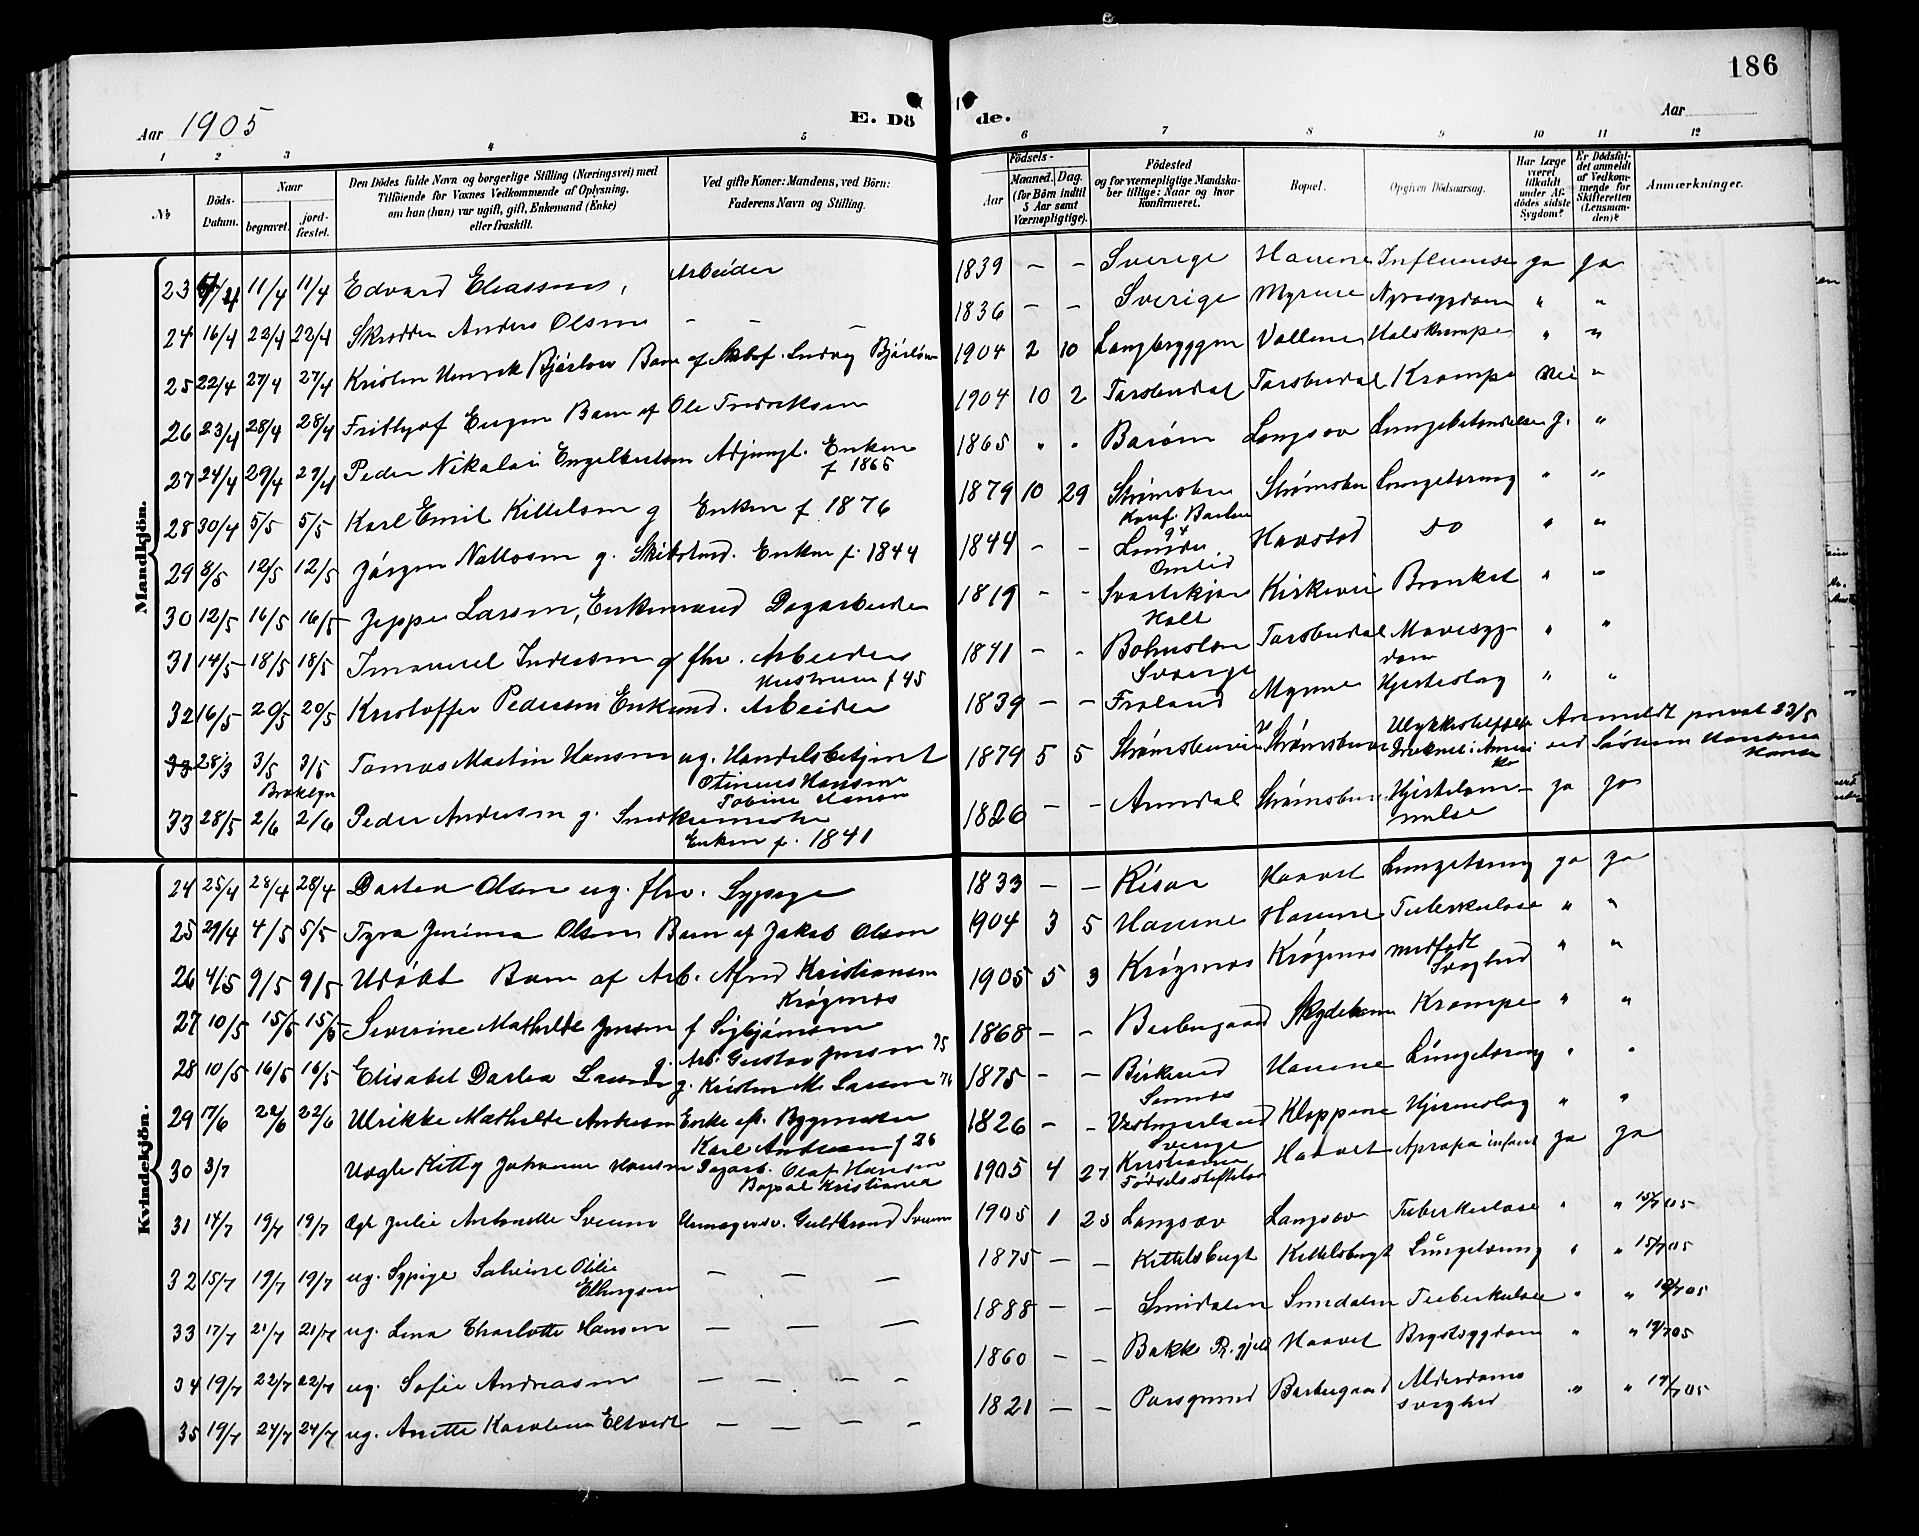 186
Aar 1905
E. Dö de.
Aar
1 2 3 4 5 6 7 8 9 10 11 12
№
Döds-Datum.
Naar
begravet.
jord-fæstet.
Den Dödes fulde Navn og borgerlige Stilling (Næringsvei) med
Tilföiende for Voxnes Vedkommende af Oplysning,
om han (hun) var ugift, gift, Enkemand (Enke)
eller fraskilt.
Ved gifte Koner: Mandens, ved Börn:
Faderens Navn og Stilling.
Födsels-
Aar
Maaned. Dag.
(for Börn indtil
5 Aar samt
Værnepligtige).
Födested
og for værnepligtige Mandska-
ber tillige: Naar og hvor
konfirmeret.
Bopæl.
Opgiven Dödsaarsag.
Har Læge
været
tilkaldt
under Af-
dödes sidste
Sygdom?
Er Dödsfal-
det anmeldt
af Vedkom-
mende for
Skifteretten
(Lensman-
den)?
Anmærkninger.
Mandkjön.
23 11/4 11/4 Edvard Eliassen, Arbeider 1839 — — Sverige Havene Influense ja ja
24 16/4 22/4 22/4 Skrædder Anders Olsen — — — 1836 — — Sverige Myrene Nyresygdom " "
25 22/4 27/4 27/4 Kristen Henrik Bjørlow Barn af Skibsf. Ludvig Bjørlow 1904 2 10 Langbryggen Vollene Halskrampe " "
26 23/4 28/4 28/4 Frithjof Eugen Barn af Ole Fredriksen 1904 10 2 Torsbudal Torsbudal Krampe nei "
27 24/4 29/4 29/4 Peder Nikolai Engelbertsen Adjungt. Enken
f 1865 1865 " " Barøen Langsæv Lungebetændelse J. "
28 30/4 5/5 5/5 Karl Emil Kittelsen g Enken f 1876 1879 10 29 Strømsbu
Konf. Barbu
94 Strømsbu Lungetæring " "
29 8/5 12/5 12/5 Jørgen Nallosen g. Skibstmd. Enken f. 1844 1844 — — Lunde,
Omlid Havstad do " "
30 12/5 16/5 16/5 Jeppe Larsen, Enkemand Dagarbeider 1819 — — Svartekjær
Holt Kirkevei Bronket " "
31 14/5 18/5 18/5 Imanuel Andersen g fhv. Arbeider
Hustruen f 45 1841 — — Bohuslen
Sverige Torsbudal Mavesyg-
dom " "
32 16/5 20/5 20/5 Kristoffer Pedersen Enkemd. Arbeider 1839 — — Froland Myrene Hjerteslag " "
33 28/3 3/5 3/5
Tomas Martin Hansen ug. Handelsbetjent
Otinius Hansen
Tobine Hansen 1879 5 5 Strømsbuvei Strømsbuvei Ulykkestilfælde
Druknet i Ameri
ka Anmeldt privat 23/5
ved Søsteren
Hansen
33 28/5 2/6 2/6 Peder Andersen g. Snedkermester
Enken f. 1841 1826 — — Arendal Strømsbu Hjertelam-
melse ja ja
Kvindekjön.
24 25/4 28/4 28/4 Dortea Olsen ug. fhv. Sypige 1833 — — Risør Haavet Lungetæring ja ja
25 29/4 4/5 5/5 Tyra Jenima Olsen Barn af Jakob Olsen 1904 3 5 Havene Havene Tuberkulose " "
26 4/5 9/5 9/5 Udøbt Barn af Arb. Alfred Kristiansen
Krøgenes 1905 5 3 Krøgenes Krøgenes medfødt
Svaghed " "
27 10/5 15/5 15/5 Severine Mathilde Jensen f Sigbjørnsen
g. Arb. Gustav Jensen 75 1868 — — Barbugaard Skydebanen Krampe " "
28 10/5 16/5 16/5 Elisabet Dortea Larsen g. Kristen M. Larsen 74 1875 — — Birkerud
Sannes Havene Lungetæring " "
29 17/6 22/6 22/6 Ulrikke Mathilde Andersen Enke eft. Bygmester
Karl Andersen f 26 1826 — — Vestmanland
Sverige Kloppene Hjerneslag " "
30 3/7 Uægte Kitty Johanne Hansen Dagarb. Olaf Hansen
Bopæl Kristiania 1905 4 27 Kristiania
Fødselsstiftelse Haavet Apropa infant ja ja
31 14/7 19/7 19/7 Ægt Julie Antonette Svenum Urmagersv. Guldbrand Svenum 1905 1 25 Langsæv Langsæv Tuberkulose " " 15/7 05
32 15/7 19/7 19/7 ug. Sypige Salvine Otilie
Ellingsen — — — 1875 — — Kittelsbugt Kittelsbugt Lungetæring " " 15/7 05
33 17/7 21/7 21/7 ug. Lina Charlotte Hansen — — — 1888 — — Smidalen Smidalen Tuberkulose " " 05
34 19/7 22/7 22/7 ug. Sofie Andreasen — — — — 1860 — — Bakke Haavet Brystsygdom " " 19/7 05
35 19/7 24/7 24/7 ug. Anette Karoline Eltvedt — — — 1821 — — Porsgrund Barbugaard Alderdoms
svaghed " " 19/7 05